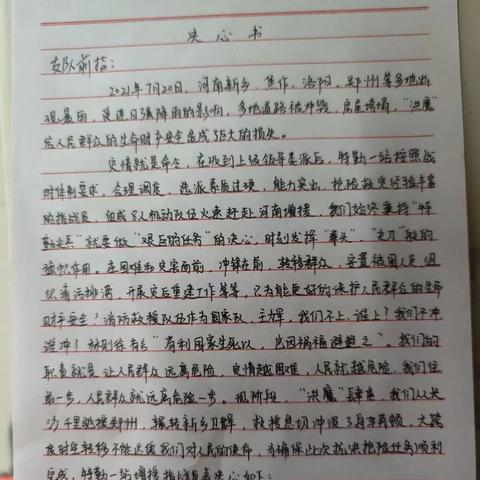 决心书
支队前指：
2021年7月20日，河南新乡、焦作、洛阳、郑州等多地出
现暴雨，受连日强降雨的影响，多地道路被冲毁，房屋垮塌，“洪魔”
给人民群众的生命财产安全造成巨大的损失。
灾情就是命令，在收到上级领导委派后，特勤一站按照战
时体制要求，合理调度，选派素质过硬，能力突出，抢险救灾经验丰富
的指战员，组成8人机动队伍火速赶赴河南增援，我们始终秉持“特
勤 就要做“艰巨的任务”的决心，时刻发挥“拳头”、“尖刀”般的
旗帜作用。在困难和灾害面前，冲锋在前，转移群众、安置被困人员组
织清污排涝，开展灾后重建工作等等，只为能更好的保护人民群众的生命
财产安全！消防救援队伍作为国家队、主力军，我们不上，谁上？我们不冲
谁冲？林则徐有言“苟利国家生死以，岂因祸福避趋之”。我们的
职责就是让人民群众远离危险，灾情越困难，人民就越危险，我们往
前一步，人民群众就远离危险一步。现阶段，“洪魔”肆虐，我们从长
沙千里驰援郑州，辗转新乡卫辉，救援急切冲波了舟车劳顿，大跨
度时空转移不能迟缓我们对人民的使命，为确保此次抗洪抢险任务顺利
完成，特勤一站增援指战员表决心如下：